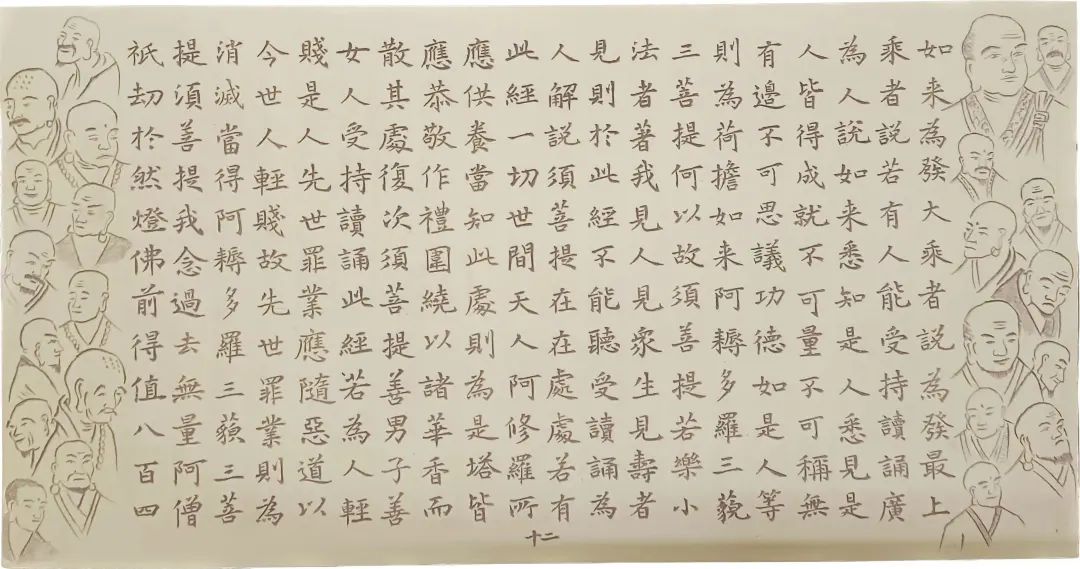 如来為發大乘者說為發最上
乘者說若有人能受持讀誦廣
為人說如来悉知是人悉見是
人皆得成就不可量不可稱無
有邊不可思議功德如是人等
則為荷擔如来阿耨多羅三藐
三菩提何以故須菩提若樂小
法者著我見人見眾生見壽者
見則於此經不能聽受讀誦為
人解說須菩提在在處處若有
此經一切世間天人阿修羅所
應供養當知此處則為是塔皆
應恭敬作禮圍繞以諸華香而
散其處復次須菩提善男子善
女人受持讀誦此經若為人輕
賤是人先世罪業應隨惡道以
今世人輕賤故先世罪業則為
消滅當得阿耨多羅三藐三菩
提須菩提我念過去無量阿僧
祇劫於然燈佛前得值八百四
十二